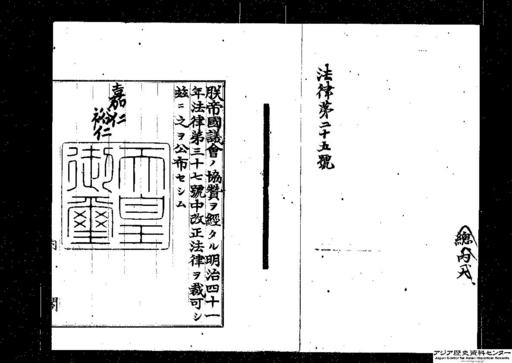 法律第二十五號
朕帝國議會ノ協贊ヲ經タル明治四十一
年法律第三十七號中改正法律ヲ裁可シ
玆ニ之ヲ公布セシム
嘉仁
裕仁
天皇
御璽
内閣
アジア歴史資料センター
Japan Center for Asian Historical Records